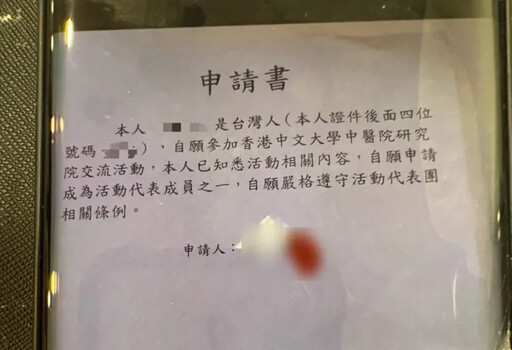 申請書
本人 是台灣人（本人證件後面四位
號碼 ），自願參加香港中文大學中醫院研究
院交流活動，本人已知悉活動相關內容，自願申請
成為活動代表成員之一，自願嚴格遵守活動代表團
相關條例。
申請人：